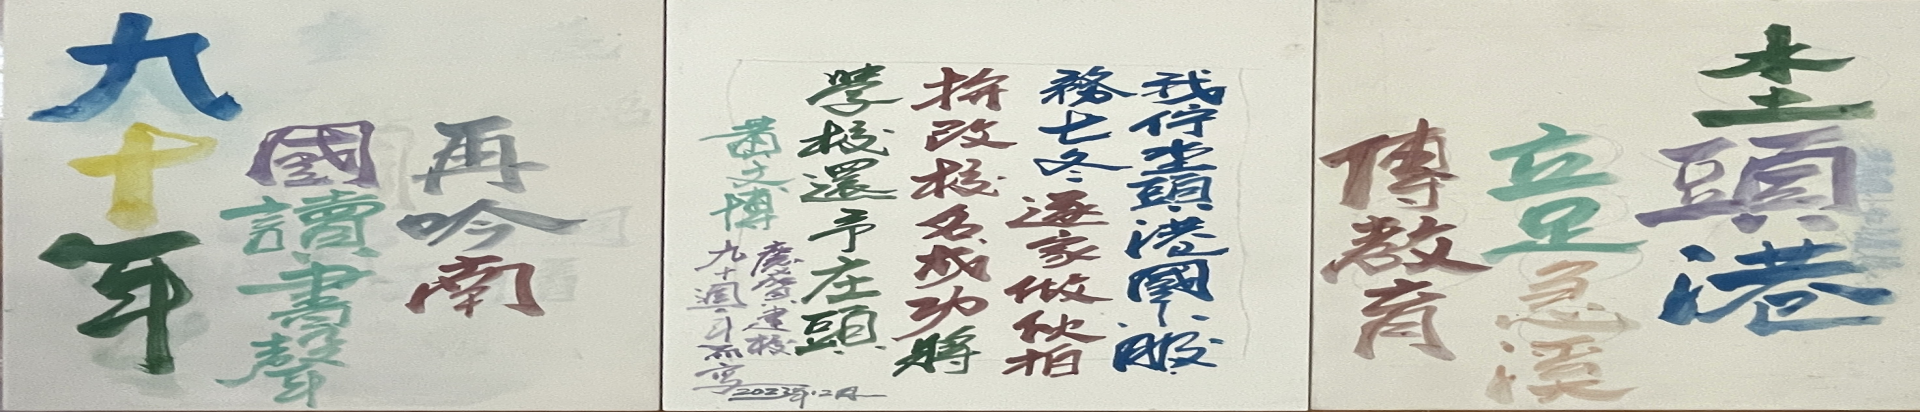 坔頭港
立足急溪
傳教育
我佇坔頭港國小服
務七冬逐家做伙拍
拚改校名成功將
學校還予庄頭
黃文博
慶賀建校
九十週年而寫
2023年12月
再吟南
國讀書聲
九十年